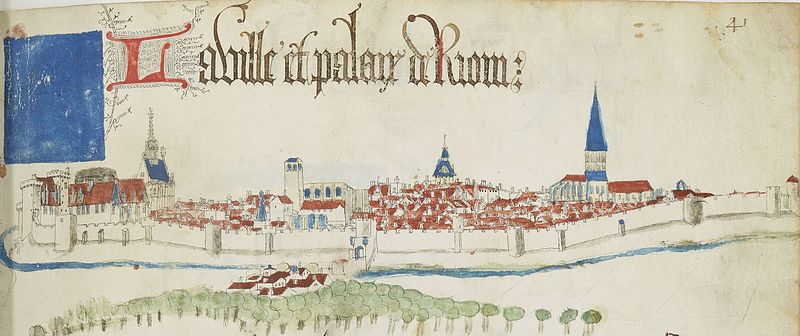 La ville et palaix de Riom :
4